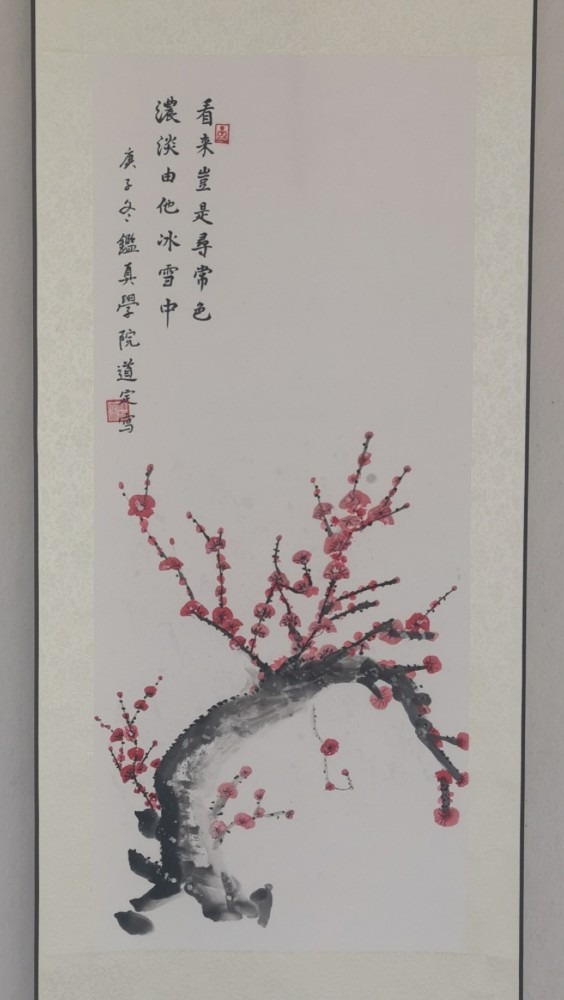 看来豈是尋常色
濃淡由他冰雪中
庚子冬鑑真學院道定寫